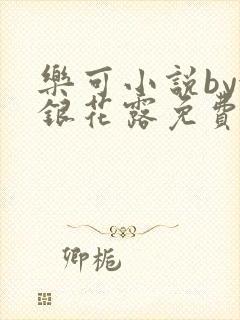 樂可小説by
銀花露免費
卿栀